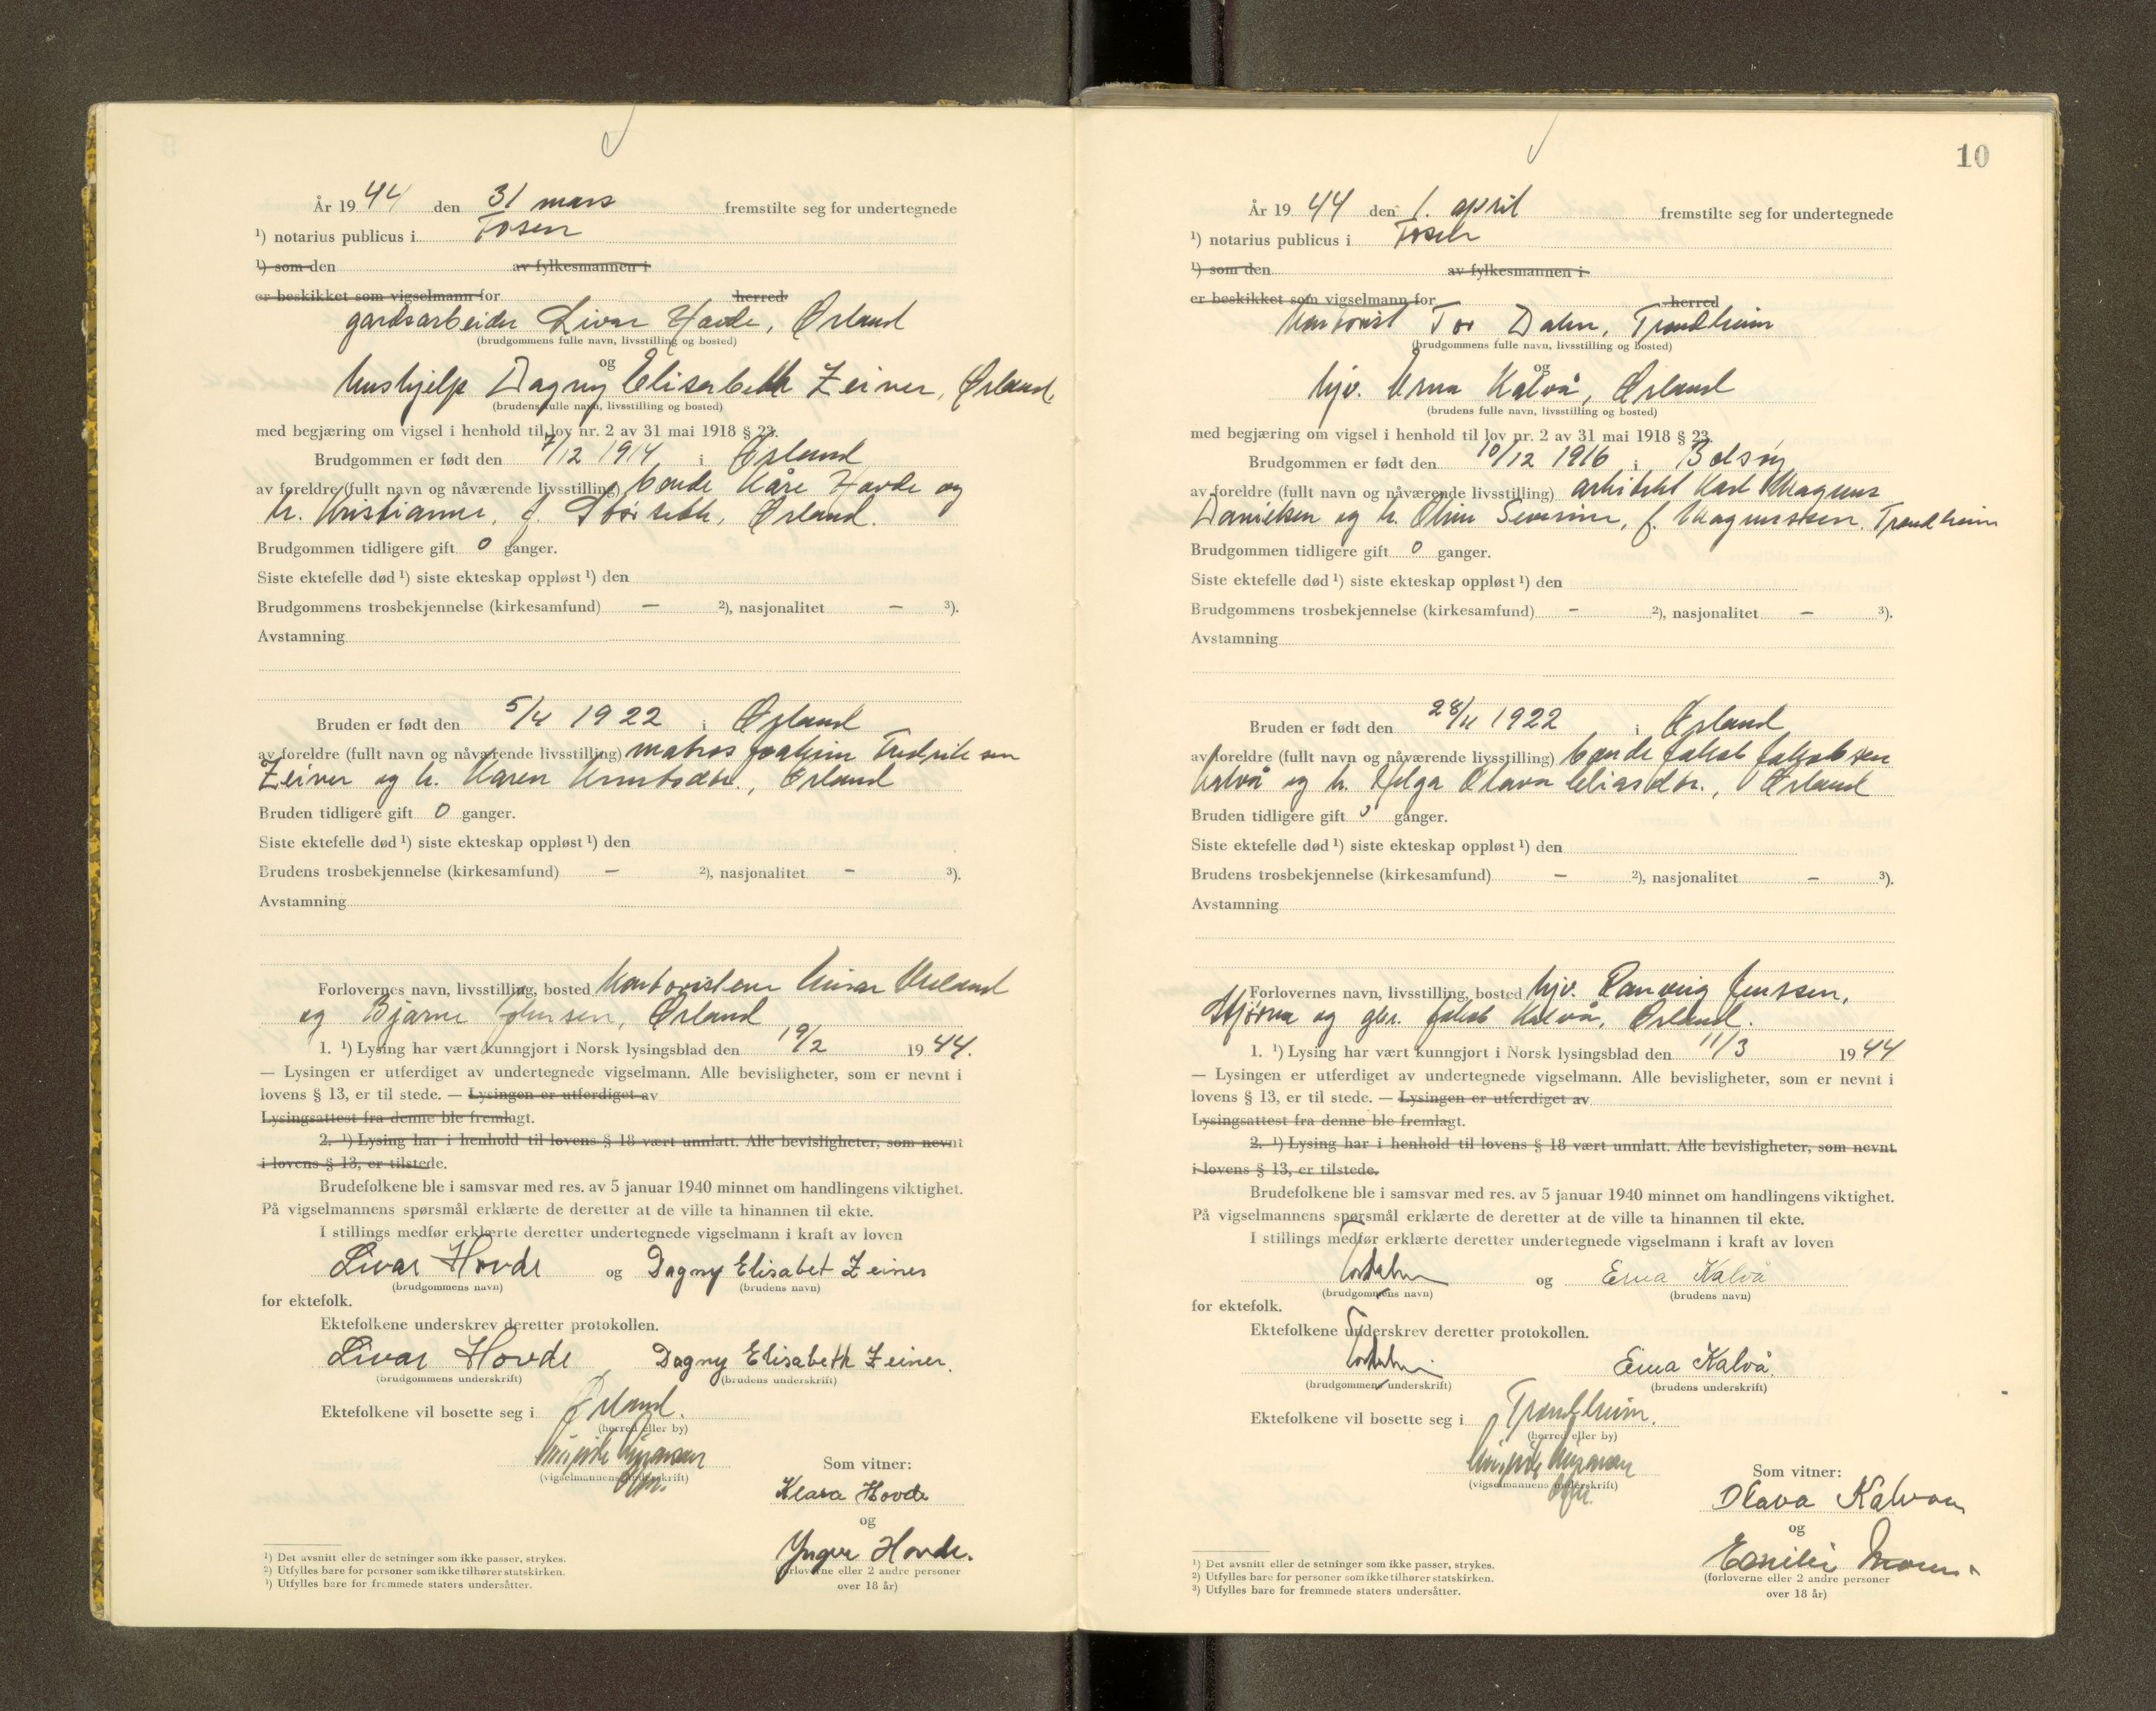 År 1944 den 31 mars fremstilte seg for undertegnede
¹) notarius publicus i Fosen
¹) som den av fylkesmannen i
er beskikket som vigselmann for herred
gardsarbeider Livar Hovde, Ørland
(brudgommens fulle navn, livsstilling og bosted)
og
hushjelp Dagny Elisabeth Zeiner, Ørland.
(brudens fulle navn, livsstilling og bosted)
med begjæring om vigsel i henhold til lov nr. 2 av 31 mai 1918 § 23.
Brudgommen er født den 7/12 1914 i Ørland
av foreldre (fullt navn og nåværende livsstilling) bonde Kåre Hovde og
h. Kristianne, f. Størseth, Ørland.
Brudgommen tidligere gift 0 ganger.
Siste ektefelle død ¹) siste ekteskap oppløst ¹) den
Brudgommens trosbekjennelse (kirkesamfund) — ²), nasjonalitet — ³).
Avstamning
Bruden er født den 5/4 1922 i Ørland
av foreldre (fullt navn og nåværende livsstilling) matros Joakim Fredriksen
Zeiner og h. Karen Knutsdtr., Ørland
Bruden tidligere gift 0 ganger.
Siste ektefelle død ¹) siste ekteskap oppløst ¹) den
Brudens trosbekjennelse (kirkesamfund) — ²), nasjonalitet — ³).
Avstamning
Forlovernes navn, livsstilling, bosted kontoristene
og Bjarne Johnsen, Ørland
1. ¹) Lysing har vært kunngjort i Norsk lysingsblad den 19/2 1944.
— Lysingen er utferdiget av undertegnede vigselmann. Alle bevisligheter, som er nevnt i
lovens § 13, er til stede. — Lysingen er utferdiget av
Lysingsattest fra denne ble fremlagt.
2. ¹) Lysing har i henhold til lovens § 18 vært unnlatt. Alle bevisligheter, som nevnt
i lovens § 13, er tilstede.
Brudefolkene ble i samsvar med res. av 5 januar 1940 minnet om handlingens viktighet.
På vigselmannens spørsmål erklærte de deretter at de ville ta hinannen til ekte.
I stillings medfør erklærte deretter undertegnede vigselmann i kraft av loven
Livar Hovde og Dagny Elisabet Zeiner
(brudgommens navn) (brudens navn)
for ektefolk.
Ektefolkene underskrev deretter protokollen.
Livar Hovde Dagny Elisabeth Zeiner.
(brudgommens underskrift) (brudens underskrift)
Ektefolkene vil bosette seg i Ørland.
(herred eller by)
(vigselmannens underskrift)
Som vitner:
Klara Hovde
og
Yngve Hovde.
(forloverne eller 2 andre personer
over 18 år)
¹) Det avsnitt eller de setninger som ikke passer, strykes.
²) Utfylles bare for personer som ikke tilhører statskirken.
³) Utfylles bare for fremmede staters undersåtter.
10
År 1944 den 1. april fremstilte seg for undertegnede
¹) notarius publicus i Fosen
¹) som den av fylkesmannen i
er beskikket som vigselmann for herred
kontorist Tor Dahn, Trondheim
(brudgommens fulle navn, livsstilling og bosted)
og
hjv. Erna Kalvå, Ørland
(brudens fulle navn, livsstilling og bosted)
med begjæring om vigsel i henhold til lov nr. 2 av 31 mai 1918 § 23.
Brudgommen er født den 10/12 1916 i Bolsøy
av foreldre (fullt navn og nåværende livsstilling) arkitekt Karl Magnus
Danielsen og h. Severine, f. Magnussen. Trondheim
Brudgommen tidligere gift 0 ganger.
Siste ektefelle død ¹) siste ekteskap oppløst ¹) den
Brudgommens trosbekjennelse (kirkesamfund) — ²), nasjonalitet — ³).
Avstamning
Bruden er født den 28/11 1922 i Ørland
av foreldre (fullt navn og nåværende livsstilling) bonde Jakob Jakobsen
Kalvå og h. Helga Olava Eliasdtr., Ørland
Bruden tidligere gift 0 ganger.
Siste ektefelle død ¹) siste ekteskap oppløst ¹) den
Brudens trosbekjennelse (kirkesamfund) — ²), nasjonalitet — ³).
Avstamning
Forlovernes navn, livsstilling, bosted hjv. Ranveig Jenssen,
Stjørna og gbr. Jakob Kalvå, Ørland.
1. ¹) Lysing har vært kunngjort i Norsk lysingsblad den 11/3 1944
— Lysingen er utferdiget av undertegnede vigselmann. Alle bevisligheter, som er nevnt i
lovens § 13, er til stede. — Lysingen er utferdiget av
Lysingsattest fra denne ble fremlagt.
2. ¹) Lysing har i henhold til lovens § 18 vært unnlatt. Alle bevisligheter, som nevnt
i lovens § 13, er tilstede.
Brudefolkene ble i samsvar med res. av 5 januar 1940 minnet om handlingens viktighet.
På vigselmannens spørsmål erklærte de deretter at de ville ta hinannen til ekte.
I stillings medfør erklærte deretter undertegnede vigselmann i kraft av loven
og Erna Kalvå
(brudgommens navn) (brudens navn)
for ektefolk.
Ektefolkene underskrev deretter protokollen.
Erna Kalvå.
(brudgommens underskrift) (brudens underskrift)
Ektefolkene vil bosette seg i Trondheim.
(herred eller by)
(vigselmannens underskrift)
Som vitner:
Olava Kalvå
og
(forloverne eller 2 andre personer
over 18 år)
¹) Det avsnitt eller de setninger som ikke passer, strykes.
²) Utfylles bare for personer som ikke tilhører statskirken.
³) Utfylles bare for fremmede staters undersåtter.